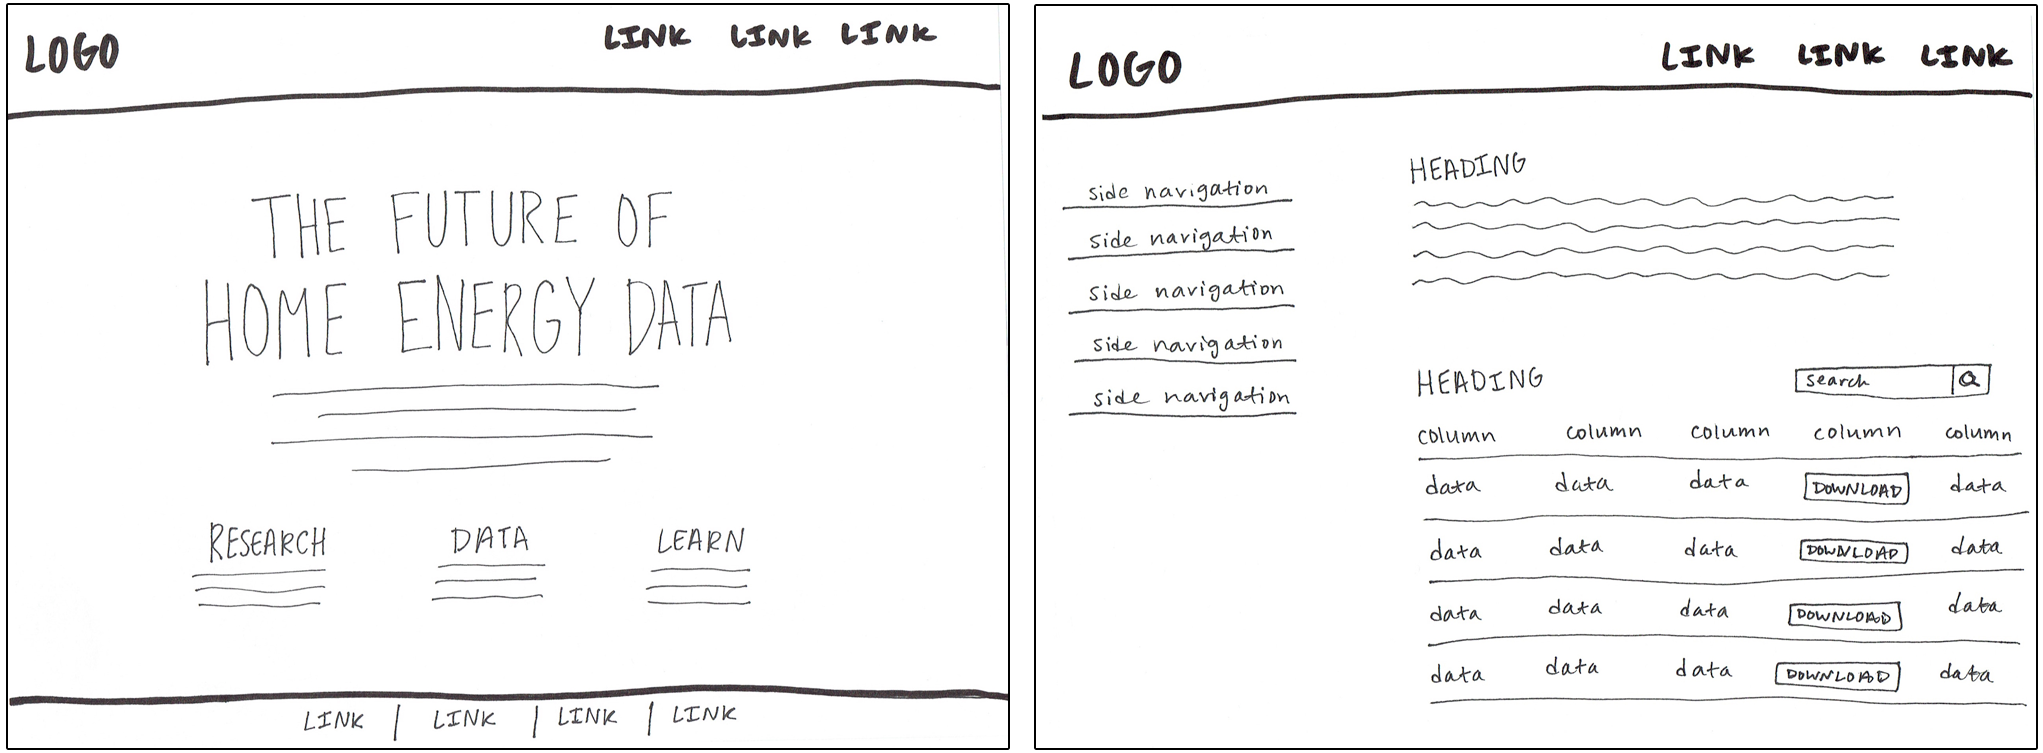 LOGO LINK LINK LINK
THE FUTURE OF
HOME ENERGY DATA
RESEARCH DATA LEARN
LINK | LINK | LINK | LINK
LOGO LINK LINK LINK
side navigation
side navigation
side navigation
side navigation
side navigation
HEADING
HEADING search
column column column column column
data data data DOWNLOAD data
data data data DOWNLOAD data
data data data DOWNLOAD data
data data data DOWNLOAD data